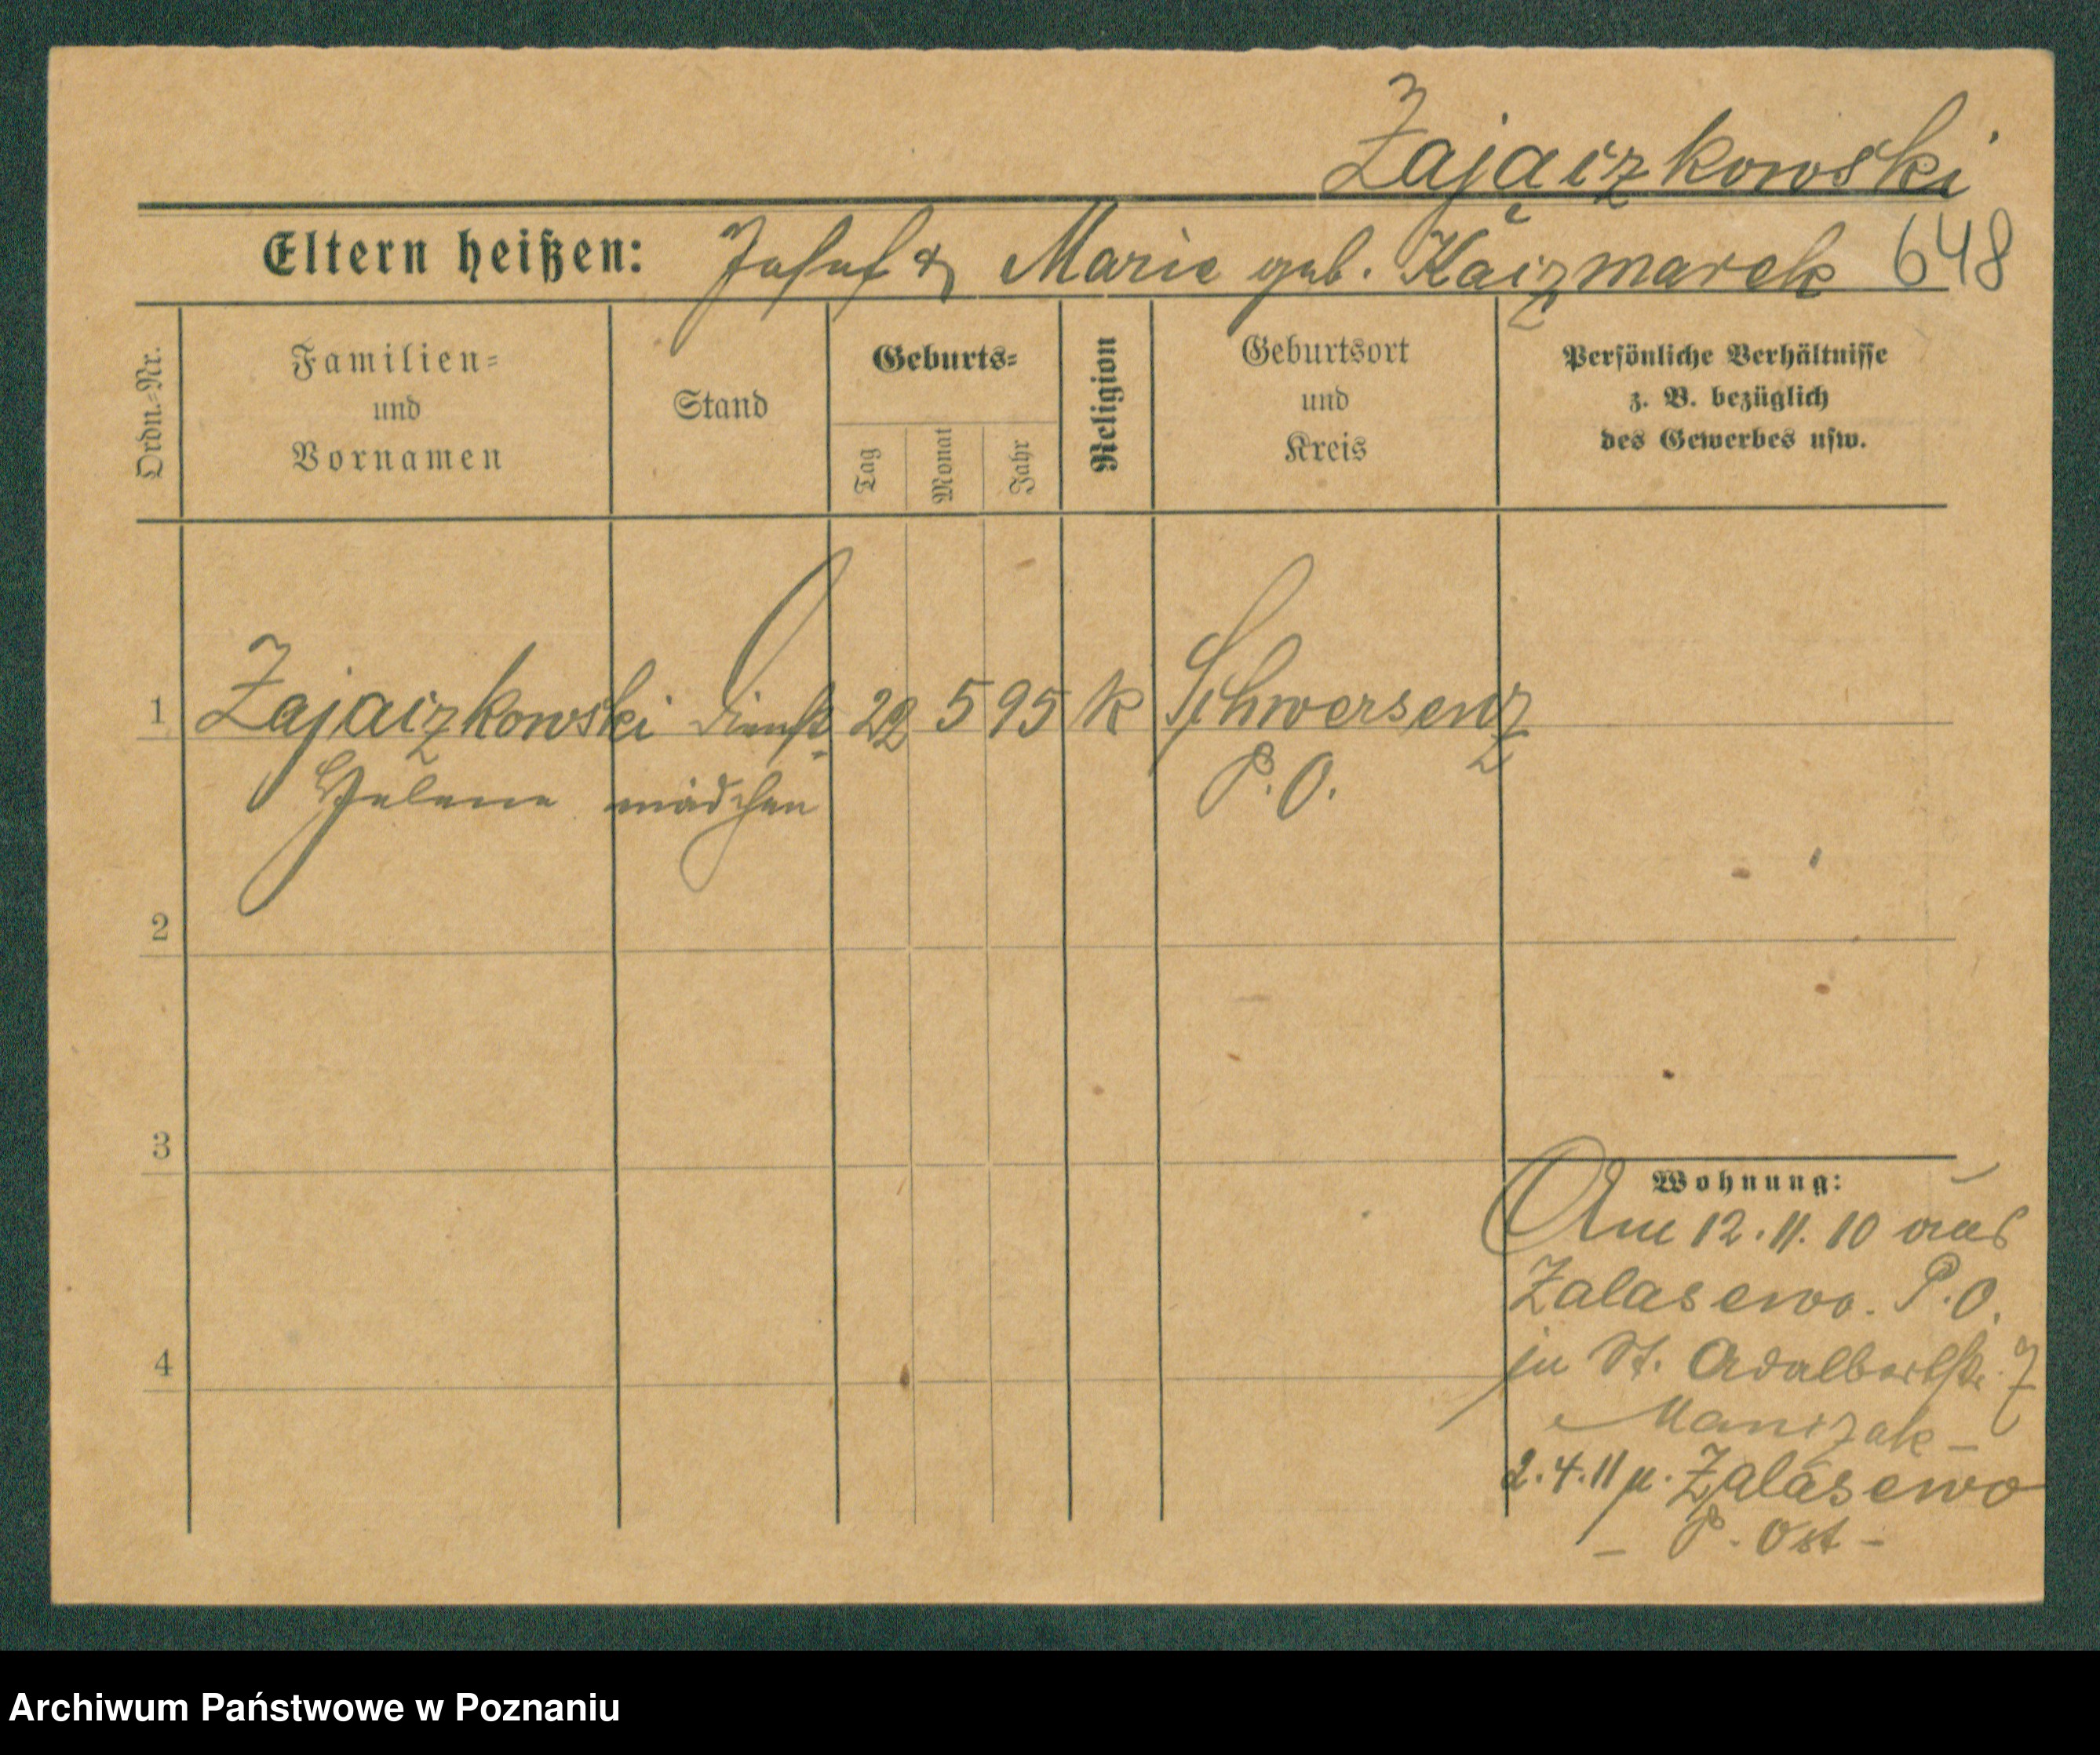 Zajączkowski
Eltern heißen: Josef & Marie geb. Kaczmarek 648
Ordn.-Nr.
Familien-
und
Vornamen
Stand
Geburts-
Tag
Monat
Jahr
Religion
Geburtsort
und
Kreis
Persönliche Verhältnisse
z. B. bezüglich
des Gewerbes usw.
1 Zajaczkowski Dienst 22 5 95 K Schwersenz
Helene mädchen P. O.
2
3
4
Wohnung:
Am 12. 11. 10 aus
Zalasewo. P. O.
zu St. Adalbertstr. 7
Manczak -
2. 4. 11 n. Zalasewo
- P. Ost -
Archiwum Państwowe w Poznaniu